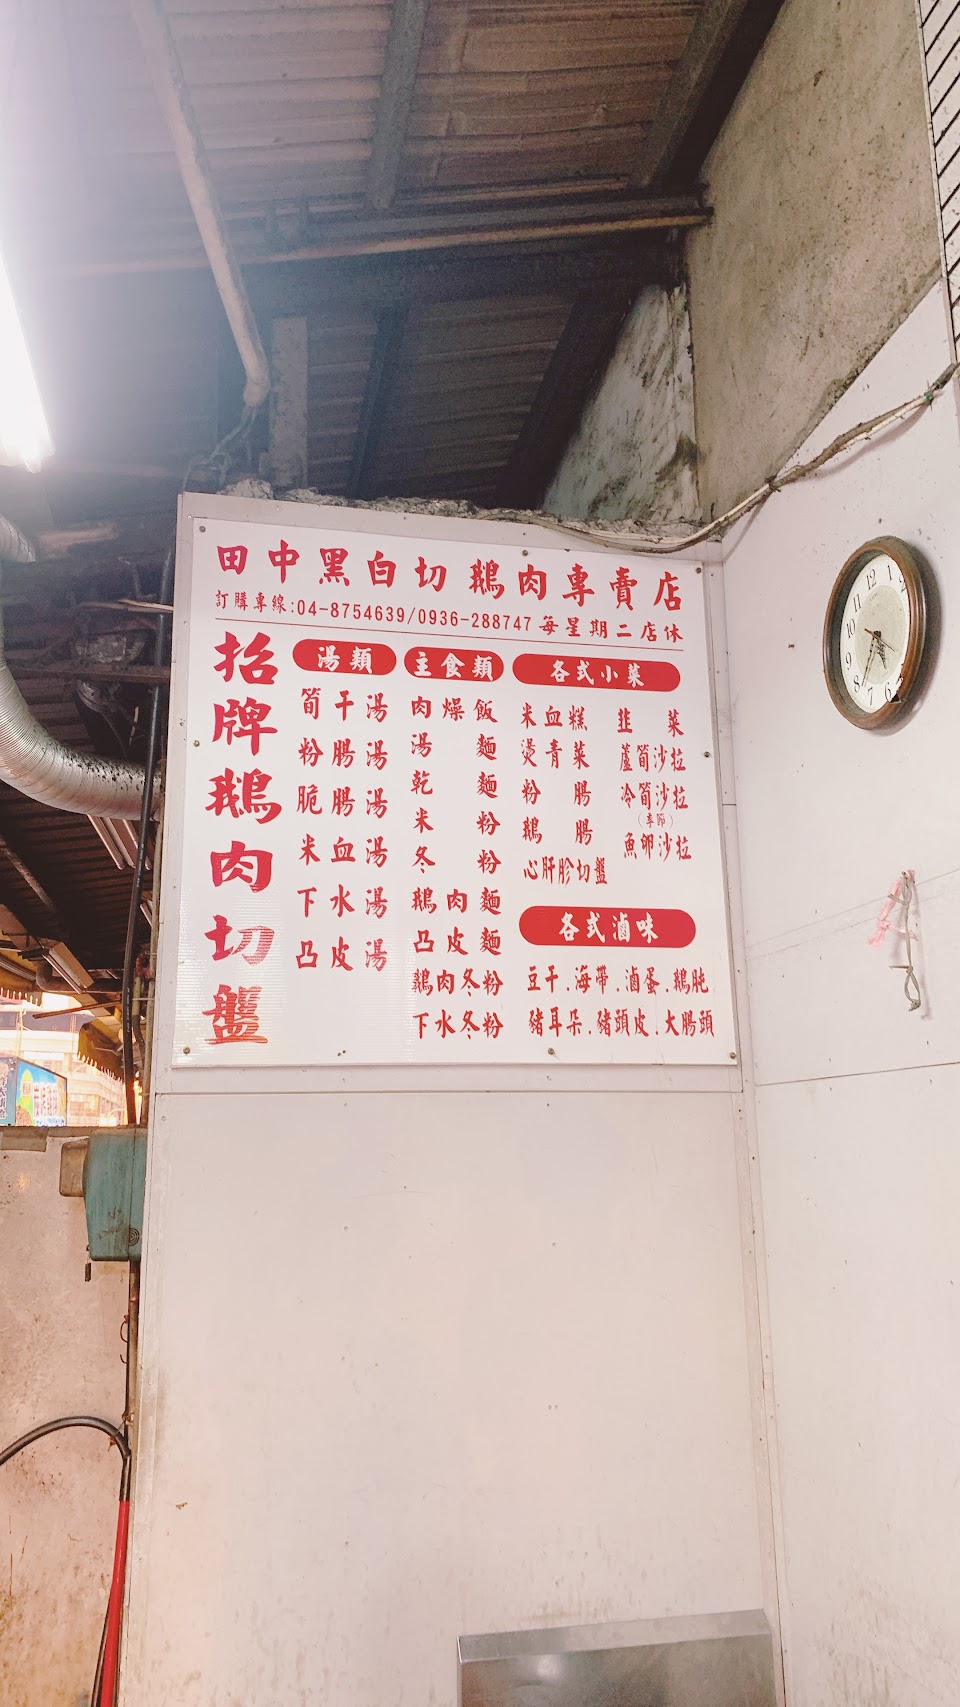 田中黑白切鵝肉專賣店
訂購專線:04-8754639/0936-288747 每星期二店休
招牌鵝肉切盤
湯類
筍干湯
粉腸湯
脆腸湯
米血湯
下水湯
凸皮湯
主食類
肉燥飯
湯麵
乾麵
米粉
冬粉
鵝肉麵
凸皮麵
鵝肉冬粉
下水冬粉
各式小菜
米血糕
燙青菜
粉腸
鵝腸
心肝胗切盤
韭菜
蘆筍沙拉
冷筍沙拉
(季節)
魚卵沙拉
各式滷味
豆干.海帶.滷蛋.鵝肫
豬耳朵.豬頭皮.大腸頭
12
1
11
10
9
8
7
6